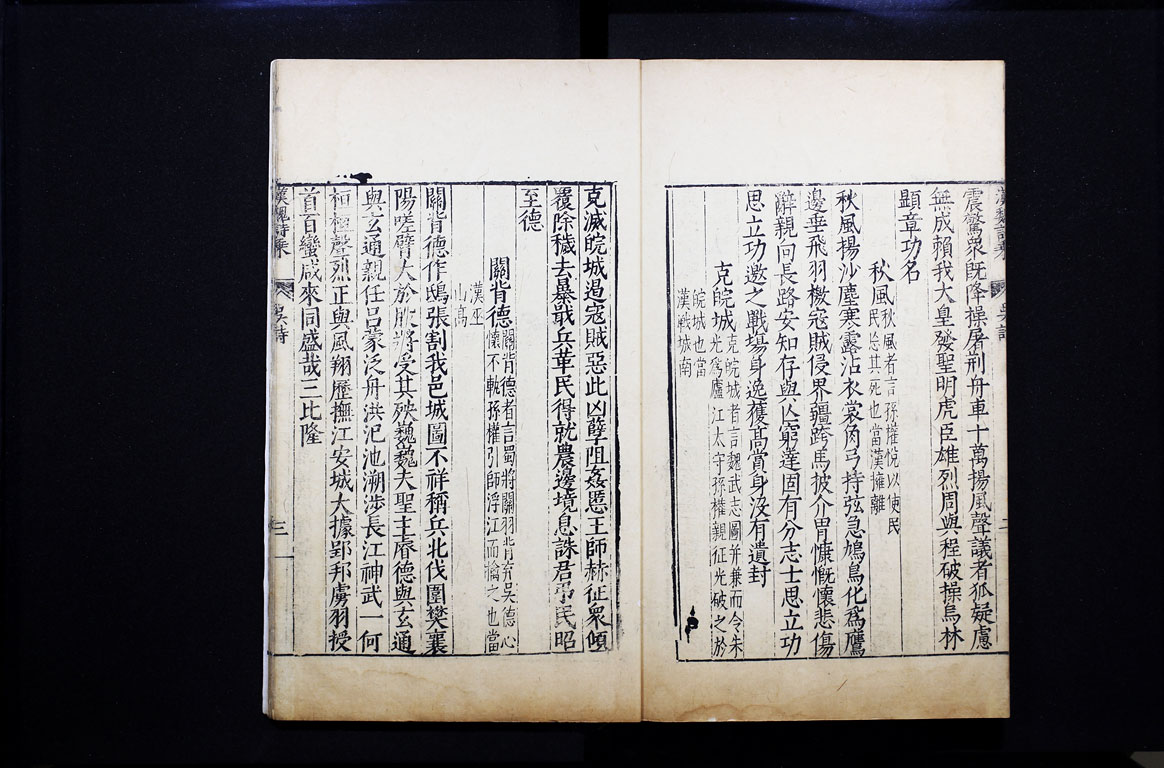 漢魏詩乘 吳詩 二
震驚衆既降操屠荊舟車十萬揚風聲議者狐疑慮
無成賴我大皇發聖明虎臣雄烈周與程破操烏林
顯章功名
秋風秋風者言孫權悅以使民
民忘其死也當漢擁離
秋風揚沙塵寒露沾衣裳角弓持弦急鳩鳥化爲鷹
邊垂飛羽檄寇賊侵界疆跨馬披介胄慷慨懷悲傷
辭親向長路安知存與亾窮達固有分志士思立功
思立功邀之戰場身逸獲高賞身沒有遺封
克皖城克皖城者言魏武志圖并兼而令朱
光爲廬江太守孫權親征光破之於
皖城也當
漢戰城南
克滅皖城遏寇賊惡此凶孽阻姦慝王師赫征衆傾
覆除穢去暴戢兵革民得就農邊境息誅君弔民昭
至德
關背德關背德者言蜀將關羽背弃吳德心
懷不軌孫權引師浮江而擒之也當
漢巫
山高
關背德作鴟張割我邑城圖不祥稱兵北伐圍樊襄
陽嗟臂大於股將受其殃巍巍夫聖主睿德與玄通
與玄通親任呂蒙泛舟洪氾池溯涉長江神武一何
桓桓聲烈正與風翔歷撫江安城大據郢邦虜羽授
首百蠻咸來同盛哉三比隆
漢魏詩乘 吳詩 三